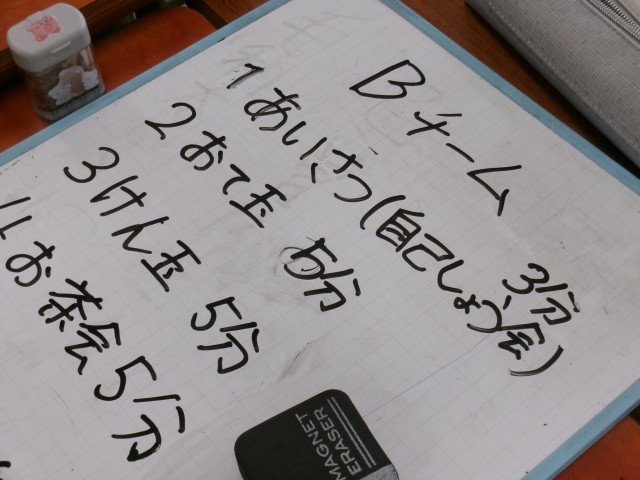 Bチーム
1 あいさつ(自己しょう会) 3分
2 おて玉 5分
3 けん玉 5分
4 お茶会 5分
MAGNET
ERASER